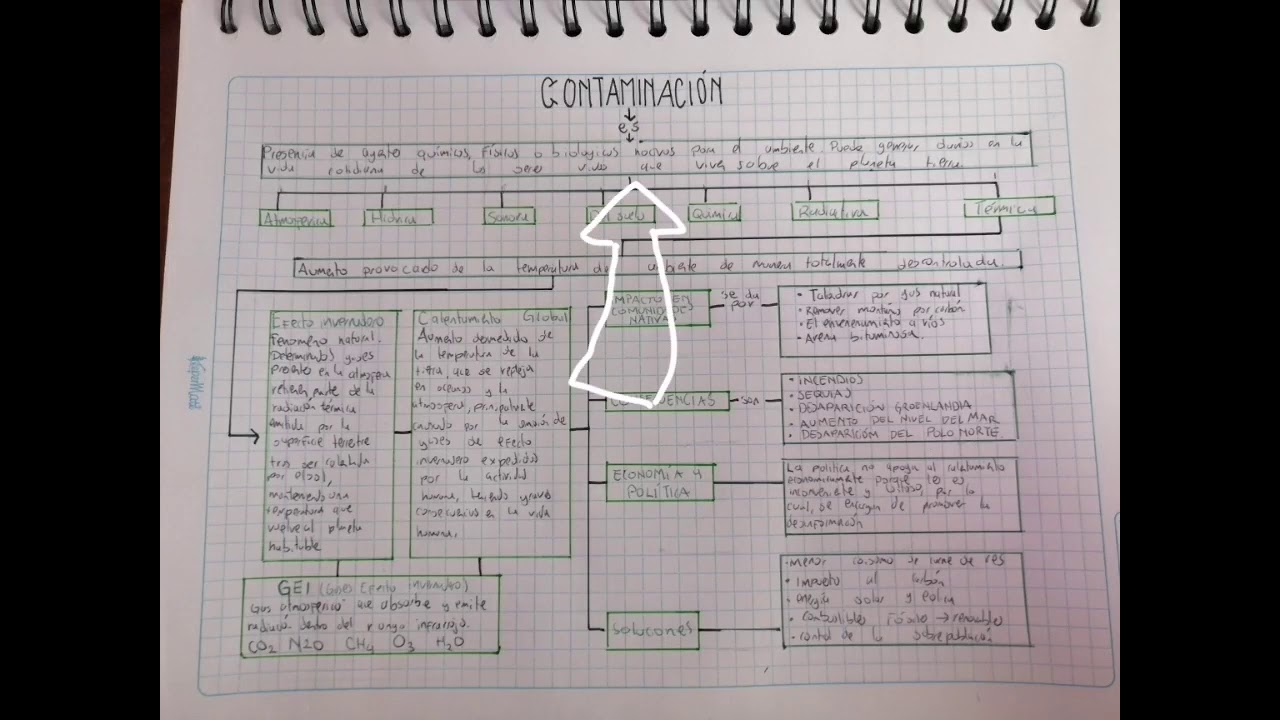 CONTAMINACIÓN
es
Presencia de agentes químicos, físicos o biologicos nocivos para el ambiente. Puede generar daños en la
vida cotidiana de los seres vivos que viven sobre el planeta tierra.
Atmosferica Hidrica Sonora suelo Química Radiativa Térmica
Aumento provocado de la temperatura del ambiente de manera totalmente descontrolada.
Efecto invernadero
Fenomeno natural.
Determinados gases
presentes en la atmosfera
retienen parte de la
radiación térmica
emitida por la
superficie terrestre
tras ser calentada
por el sol,
manteniendo una
temperatura que
vuelve al planeta
habitable
Calentamiento Global
Aumento desmedido de
la temperatura de la
tierra, que se refleja
en oceanos y la
atmosfera, principalmente
causado por la emisión de
gases de efecto
invernadero expedidos
por la actividad
humana, teniendo graves
consecuencias en la vida
humana.
GEI (Gases Efecto invernadero)
Gas atmosferico que absorbe y emite
radiación dentro del rango infrarrojo.
CO2 N2O CH4 O3 H2O
IMPACTO EN
COMUNIDADES
NATIVAS
se da
por
• Taladrar por gas natural
• Remover montañas por carbón
• El envenenamiento a ríos
• Arena bituminosa.
son
• INCENDIOS
• SEQUIAS
• DESAPARICIÓN GROENLANDIA
• AUMENTO DEL NIVEL DEL MAR
• DESAPARICIÓN DEL POLO NORTE.
ECONOMÍA Y
POLÍTICA
La política no apoya al calentamiento
economicamente porque les es
inconveniente y costoso, por lo
cual, se encargan de promover la
desinformación
SOLUCIONES
• Menor consumo de carne de res
• impuesto al carbón
• energía solar y eolica
• combustibles fósiles → renovables
• control de la sobrepoblación